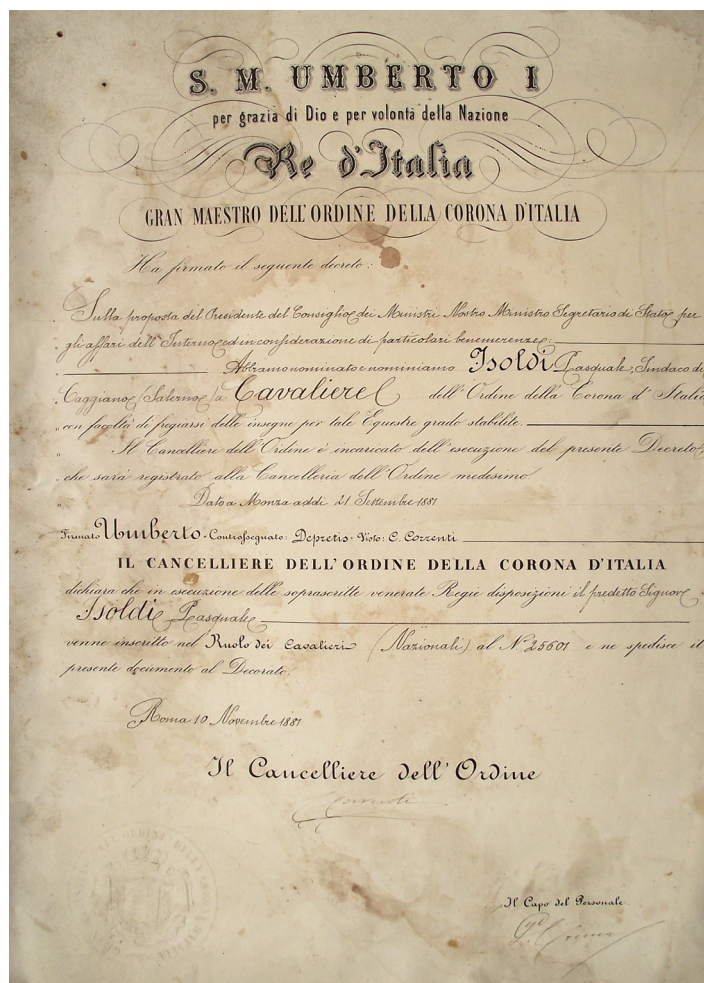 S. M. UMBERTO I
per grazia di Dio e per volontà della Nazione
Re d'Italia
GRAN MAESTRO DELL'ORDINE DELLA CORONA D'ITALIA
Ha firmato il seguente decreto:
Sulla proposta del Presidente del Consiglio dei Ministri Nostro Ministro Segretario di Stato per
gli affari dell'Interno ed in considerazione di particolari benemerenze:
Abbiamo nominato e nominiamo Isoldi Pasquale, Sindaco di
Caggiano (Salerno) a Cavaliere dell'Ordine della Corona d'Italia
" con facoltà di fregiarsi delle insegne per tale Equestre grado stabilite.
" Il Cancelliere dell'Ordine è incaricato dell'esecuzione del presente Decreto,
" che sarà registrato alla Cancelleria dell'Ordine medesimo.
" Dato a Monza addì 21 Settembre 1881
Firmato Umberto - Controssegnato: Depretis - Visto: C. Correnti
IL CANCELLIERE DELL'ORDINE DELLA CORONA D'ITALIA
dichiara che in esecuzione delle soprascritte venerate Regie disposizioni il predetto Signore
Isoldi Pasquale
venne inscritto nel Ruolo dei Cavalieri (Nazionali) al N.° 25601 e ne spedisce il
presente documento al Decorato.
Roma 10 Novembre 1881
Il Cancelliere dell'Ordine
Correnti
Il Capo del Personale